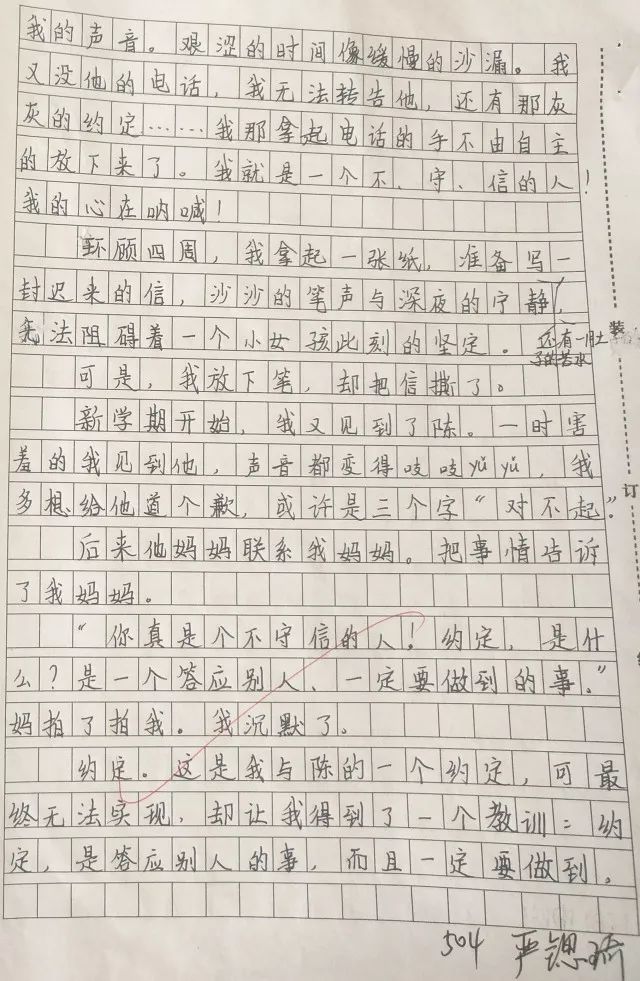 我的声音。艰涩的时间像缓慢的沙漏。我
又没他的电话，我无法转告他，还有那灰
灰的约定……我那拿起电话的手不由自主
的放下来了。我就是一个不、守、信的人！
我的心在呐喊！
环顾四周，我拿起一张纸，准备写一
封迟来的信，沙沙的笔声与深夜的宁静，
无法阻碍着一个小女孩此刻的坚定。
还有一肚
子的苦水
装
可是，我放下笔，却把信撕了。
新学期开始，我又见到了陈。一时害
羞的我见到他，声音都变得吱吱yǔyǔ，我
多想给他道个歉，或许是三个字“对不起”。
订
后来他妈妈联系我妈妈。把事情告诉
了我妈妈。
“你真是个不守信的人！约定，是什
么？是一个答应别人、一定要做到的事。”
妈拍了拍我。我沉默了。
约定。这是我与陈的一个约定，可最
终无法实现，却让我得到了一个教训：约
定，是答应别人的事，而且一定要做到。
504 严